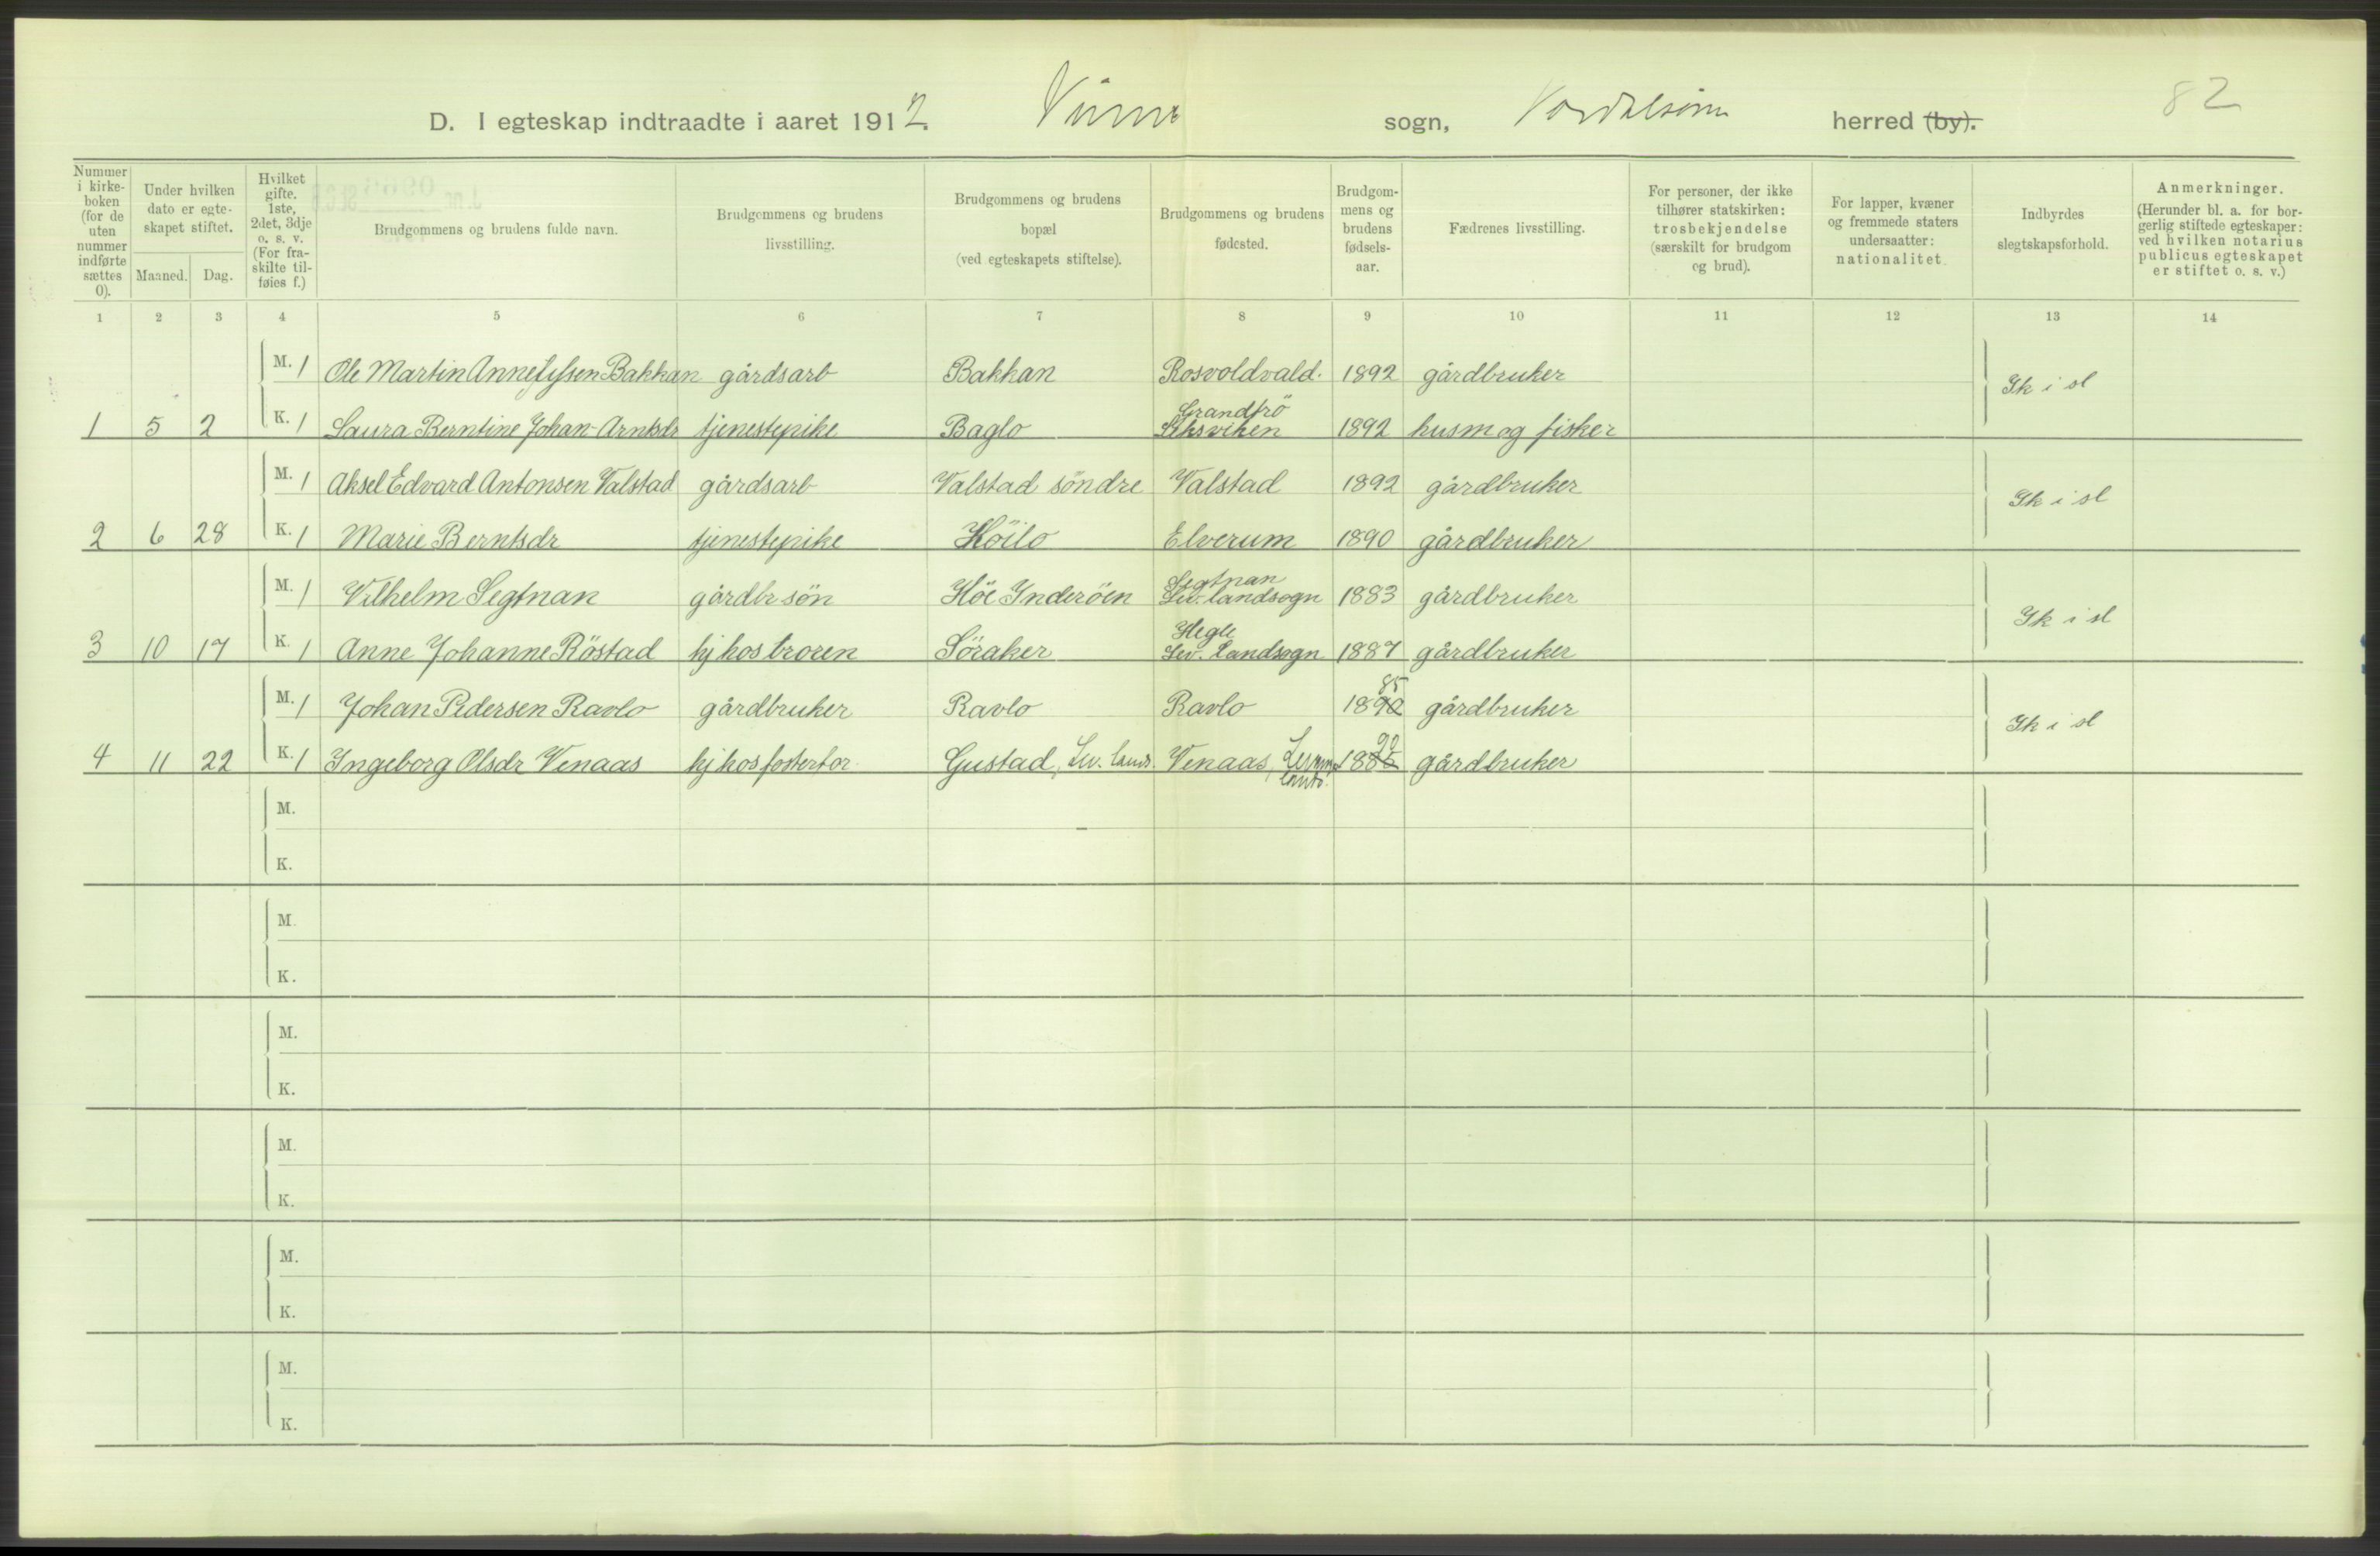 D. I egteskap indtraadte i aaret 1912. Vinne sogn, herred (by). 82
Nummer i kirke-boken (for de uten nummer indførte sættes 0).
Under hvilken dato er egte-skapet stiftet.
Maaned. Dag.
Hvilket gifte. 1ste, 2det, 3dje o. s. v. (For fra-skilte til-føies f.)
Brudgommens og brudens fulde navn.
Brudgommens og brudens livsstilling.
Brudgommens og brudens bopæl (ved egteskapets stiftelse).
Brudgommens og brudens fødested.
Brudgom-mens og brudens fødsels-aar.
Fædrenes livsstilling.
For personer, der ikke tilhører statskirken: trosbekjendelse (særskilt for brudgom og brud).
For lapper, kvæner og fremmede staters undersaatter: nationalitet.
Indbyrdes slegtskapsforhold.
Anmerkninger. (Herunder bl. a. for bor-gerlig stiftede egteskaper: ved hvilken notarius publicus egteskapet er stiftet o. s. v.)
1 2 3 4 5 6 7 8 9 10 11 12 13 14
M. 1 Ole Martin Bakkan gårdsarb Bakkan Rosvoldvald. 1892 gårdbruker Ik i sl
Grandfrö
1 5 2 K. 1 Laura Berntine Johan-Arntsdr tjenestepike Baglo Leksviken 1892 husm og fisker
M. 1 Aksel Edvard Antonsen Valstad gårdsarb Valstad söndre Valstad 1892 gårdbruker Ik i sl
2 6 28 K. 1 Marie Berntsdr tjenestepike Höilo Elverum 1890 gårdbruker
Segtnan
M. 1 Vilhelm Segtnan gårdbr sön Höe Inderöen Lev. landsogn 1883 gårdbruker Ik i sl
Hegle
3 10 17 K. 1 Anne Johanne Röstad hj hos broren Söraker Lev. landsogn 1887 gårdbruker
85
M. 1 Johan Pedersen Ravlo gårdbruker Ravlo Ravlo 1890 gårdbruker Ik i sl
90
4 11 22 K. 1 Ingeborg Olsdr Venaas hj hos fosterfor. Gustad, Lev. lands. Venaas, 1885 gårdbruker
M.
K.
M.
K.
M.
K.
M.
K.
M.
K.
M.
K.